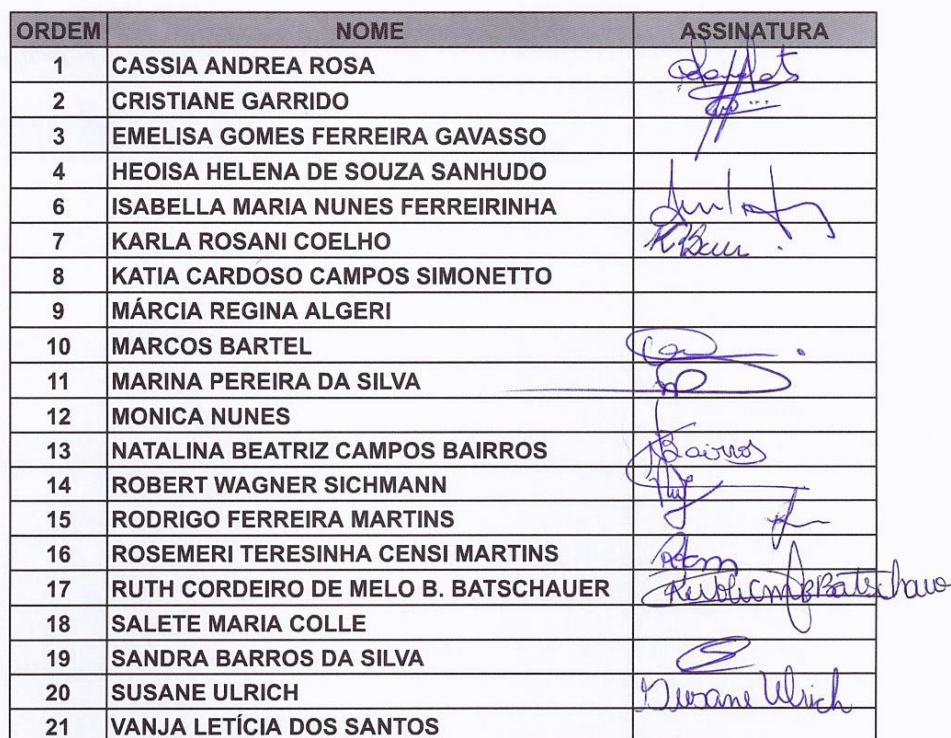 ORDEM NOME ASSINATURA
1 CASSIA ANDREA ROSA
2 CRISTIANE GARRIDO
3 EMELISA GOMES FERREIRA GAVASSO
4 HEOISA HELENA DE SOUZA SANHUDO
6 ISABELLA MARIA NUNES FERREIRINHA
7 KARLA ROSANI COELHO
8 KATIA CARDOSO CAMPOS SIMONETTO
9 MÁRCIA REGINA ALGERI
10 MARCOS BARTEL
11 MARINA PEREIRA DA SILVA
12 MONICA NUNES
13 NATALINA BEATRIZ CAMPOS BAIRROS Bairros
14 ROBERT WAGNER SICHMANN
15 RODRIGO FERREIRA MARTINS
16 ROSEMERI TERESINHA CENSI MARTINS
17 RUTH CORDEIRO DE MELO B. BATSCHAUER
18 SALETE MARIA COLLE
19 SANDRA BARROS DA SILVA
20 SUSANE ULRICH Susane Ulrich
21 VANJA LETÍCIA DOS SANTOS